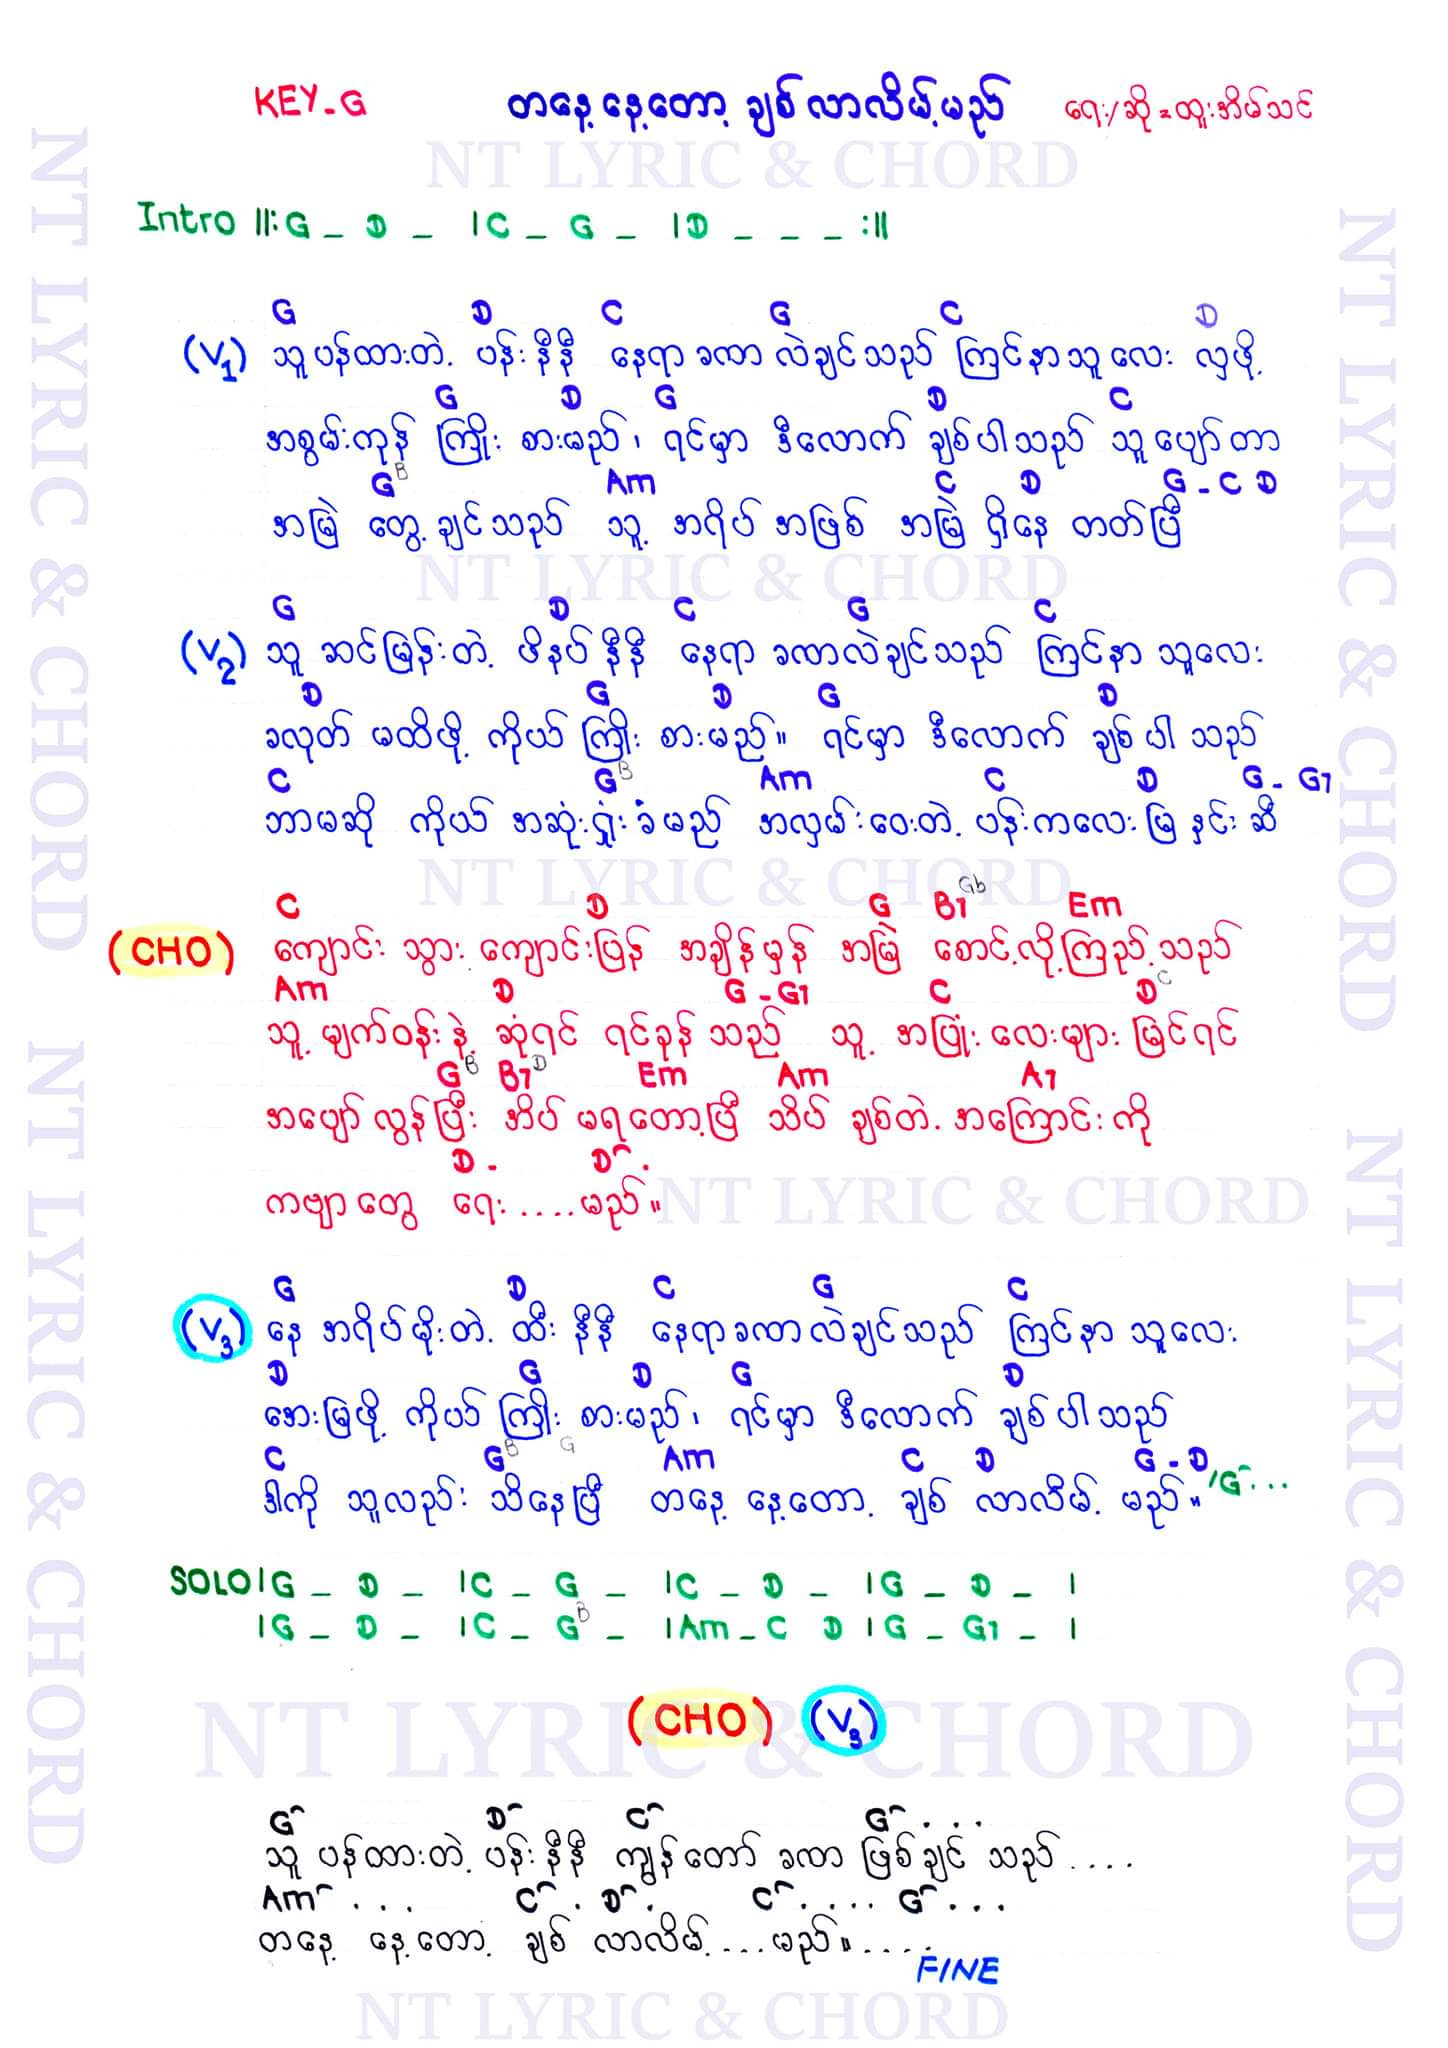 KEY-G တနေ့နေ့တော့ ချစ်လာလိမ့်မည် ရေး/ဆို=ထူးအိမ်သင်
NT LYRIC & CHORD
Intro ||: G _ D _ | C _ G _ | D _ _ _ :||
G D C G C D
(V1) သူပန်ထားတဲ့ ပန်းနီနီ နေရာခဏ လဲချင်သည် ကြင်နာသူလေး လှဖို့
G D G D C
အစွမ်းကုန် ကြိုးစားမည်၊ ရင်မှာ ဒီလောက် ချစ်ပါသည် သူပျော်တာ
G B Am C D G - C D
အမြဲ တွေ့ချင်သည် သူ့ အရိပ် အဖြစ် အမြဲ ရှိနေ တတ်ပြီ
NT LYRIC & CHORD
G D C G C
(V2) သူ ဆင်မြန်းတဲ့ ဖိနပ်နီနီ နေရာ ခဏလဲချင်သည် ကြင်နာ သူလေး
D G D G D
ခလုတ် မထိဖို့ ကိုယ် ကြိုးစားမည်။ ရင်မှာ ဒီလောက် ချစ်ပါ သည်
C G B Am C D G - G7
ဘာမဆို ကိုယ် အဆုံးရှုံးခံမည် အလှမ်းဝေးတဲ့ ပန်းကလေး မြနှင်းဆီ
NT LYRIC & CHORD
C D G B7 Gb Em
(CHO) ကျောင်းသွား ကျောင်းပြန် အချိန်မှန် အမြဲ စောင့်လို့ကြည့်သည်
Am D G - G7 C D C
သူ့ မျက်ဝန်းနဲ့ ဆုံရင် ရင်ခုန်သည် သူ့ အပြုံးလေးများ မြင်ရင်
G B B7 D Em Am A7
အပျော်လွန်ပြီး အိပ်မရတော့ပြီ သိပ်ချစ်တဲ့အကြောင်းကို
D - D^ .
ကဗျာတွေ ရေး....မည်။
NT LYRIC & CHORD
G D C G C
(V3) နေ အရိပ်မိုးတဲ့ ထီးနီနီ နေရာခဏလဲချင်သည် ကြင်နာ သူလေး
D G D G D
အေးမြဖို့ ကိုယ် ကြိုးစားမည်၊ ရင်မှာ ဒီလောက် ချစ်ပါသည်
C G B G Am C D G - D
ဒါကို သူလည်း သိနေပြီ တနေ့ နေ့တော့ ချစ် လာလိမ့် မည်။ /G^...
SOLO | G _ D _ | C _ G _ | C _ D _ | G _ D _ |
| G _ D _ | C _ G B _ | Am _ C D | G _ G7 _ |
(CHO) (V3)
NT LYRIC & CHORD
G^ D^ C^ G^ . . .
သူ ပန်ထားတဲ့ ပန်းနီနီ ကျွန်တော် ခဏ ဖြစ်ချင် သည်....
Am^ . . . C^ . D^ . C^ . . . . G^ . . .
တနေ့ နေ့တော့ ချစ် လာလိမ့်....မည်။.....
FINE
NT LYRIC & CHORD
NT LYRIC & CHORD
NT LYRIC & CHORD
NT LYRIC & CHORD
NT LYRIC & CHORD